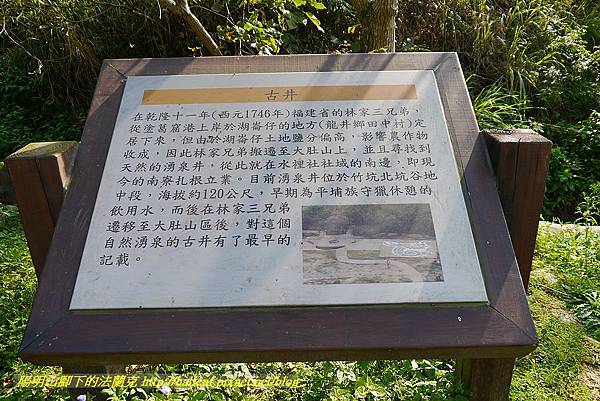 古井
在乾隆十一年(西元1746年)福建省的林家三兄弟,
從塗葛窟港上岸於湖崙仔的地方(龍井鄉田中村)定
居下來,但由於湖崙仔土地鹽分偏高,影響農作物
收成,因此林家兄弟搬遷至大肚山上,並且尋找到
天然的湧泉井,從此就在水裡社社域的南邊,即現
今的南寮扎根立業。目前湧泉井位於竹坑北坑谷地
中段,海拔約120公尺,早期為平埔族守獵休憩的
飲用水,而後在林家三兄弟
遷移至大肚山區後,對這個
自然湧泉的古井有了最早的
記載。
陽明山腳下的法蘭克